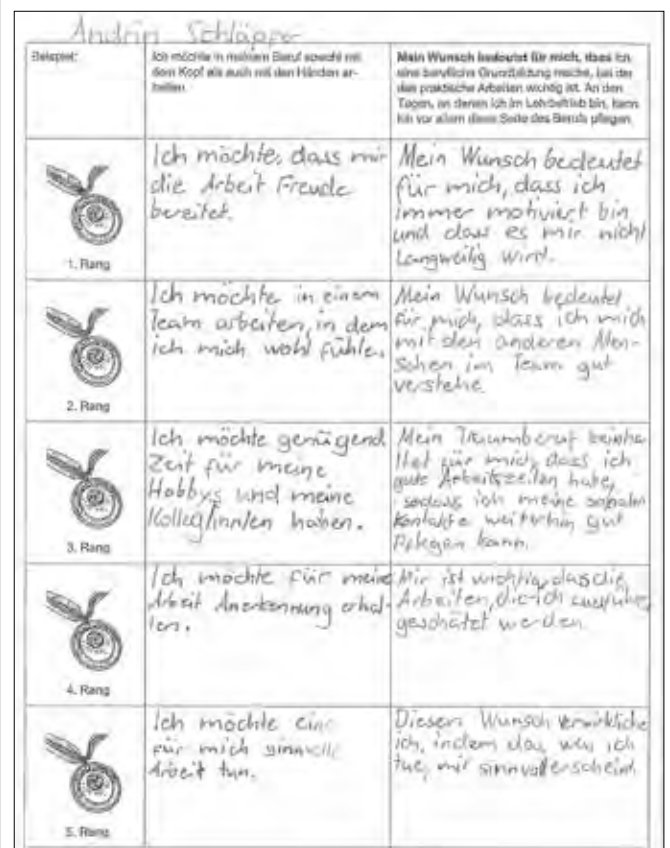 Andrin Schläpfer
Beispiel:
Ich möchte in meinem Beruf sowohl mit
dem Kopf als auch mit den Händen ar-
beiten.
Mein Wunsch bedeutet für mich, dass ich
eine berufliche Grundbildung mache, bei der
das praktische Arbeiten wichtig ist. An den
Tagen, an denen ich im Lehrbetrieb bin, kann
ich vor allem diese Seite des Berufs pflegen.
1. Rang
Ich möchte, dass mir
die Arbeit Freude
bereitet.
Mein Wunsch bedeutet
für mich, dass ich
immer motiviert bin
und dass es mir nicht
langweilig wird.
2. Rang
Ich möchte in einem
Team arbeiten, in dem
ich mich wohl fühle.
Mein Wunsch bedeutet
für mich, dass ich mich
mit den anderen Men-
schen im Team gut
verstehe.
3. Rang
Ich möchte genügend
Zeit für meine
Hobbys und meine
Kolleg/inn/en haben.
Mein Traumberuf beinha
ltet für mich, dass ich
gute Arbeitszeiten habe,
sodass ich meine sozialen
Kontakte weiterhin gut
pflegen kann.
4. Rang
Ich möchte für meine
Arbeit Anerkennung erhal-
ten.
Mir ist wichtig, dass die
Arbeiten, die ich ausführe,
geschätzt werden
5. Rang
Ich möchte eine
für mich sinnvolle
Arbeit tun.
Diesen Wunsch verwirkliche
ich, indem das, was ich
tue, mir sinnvoll erscheint.